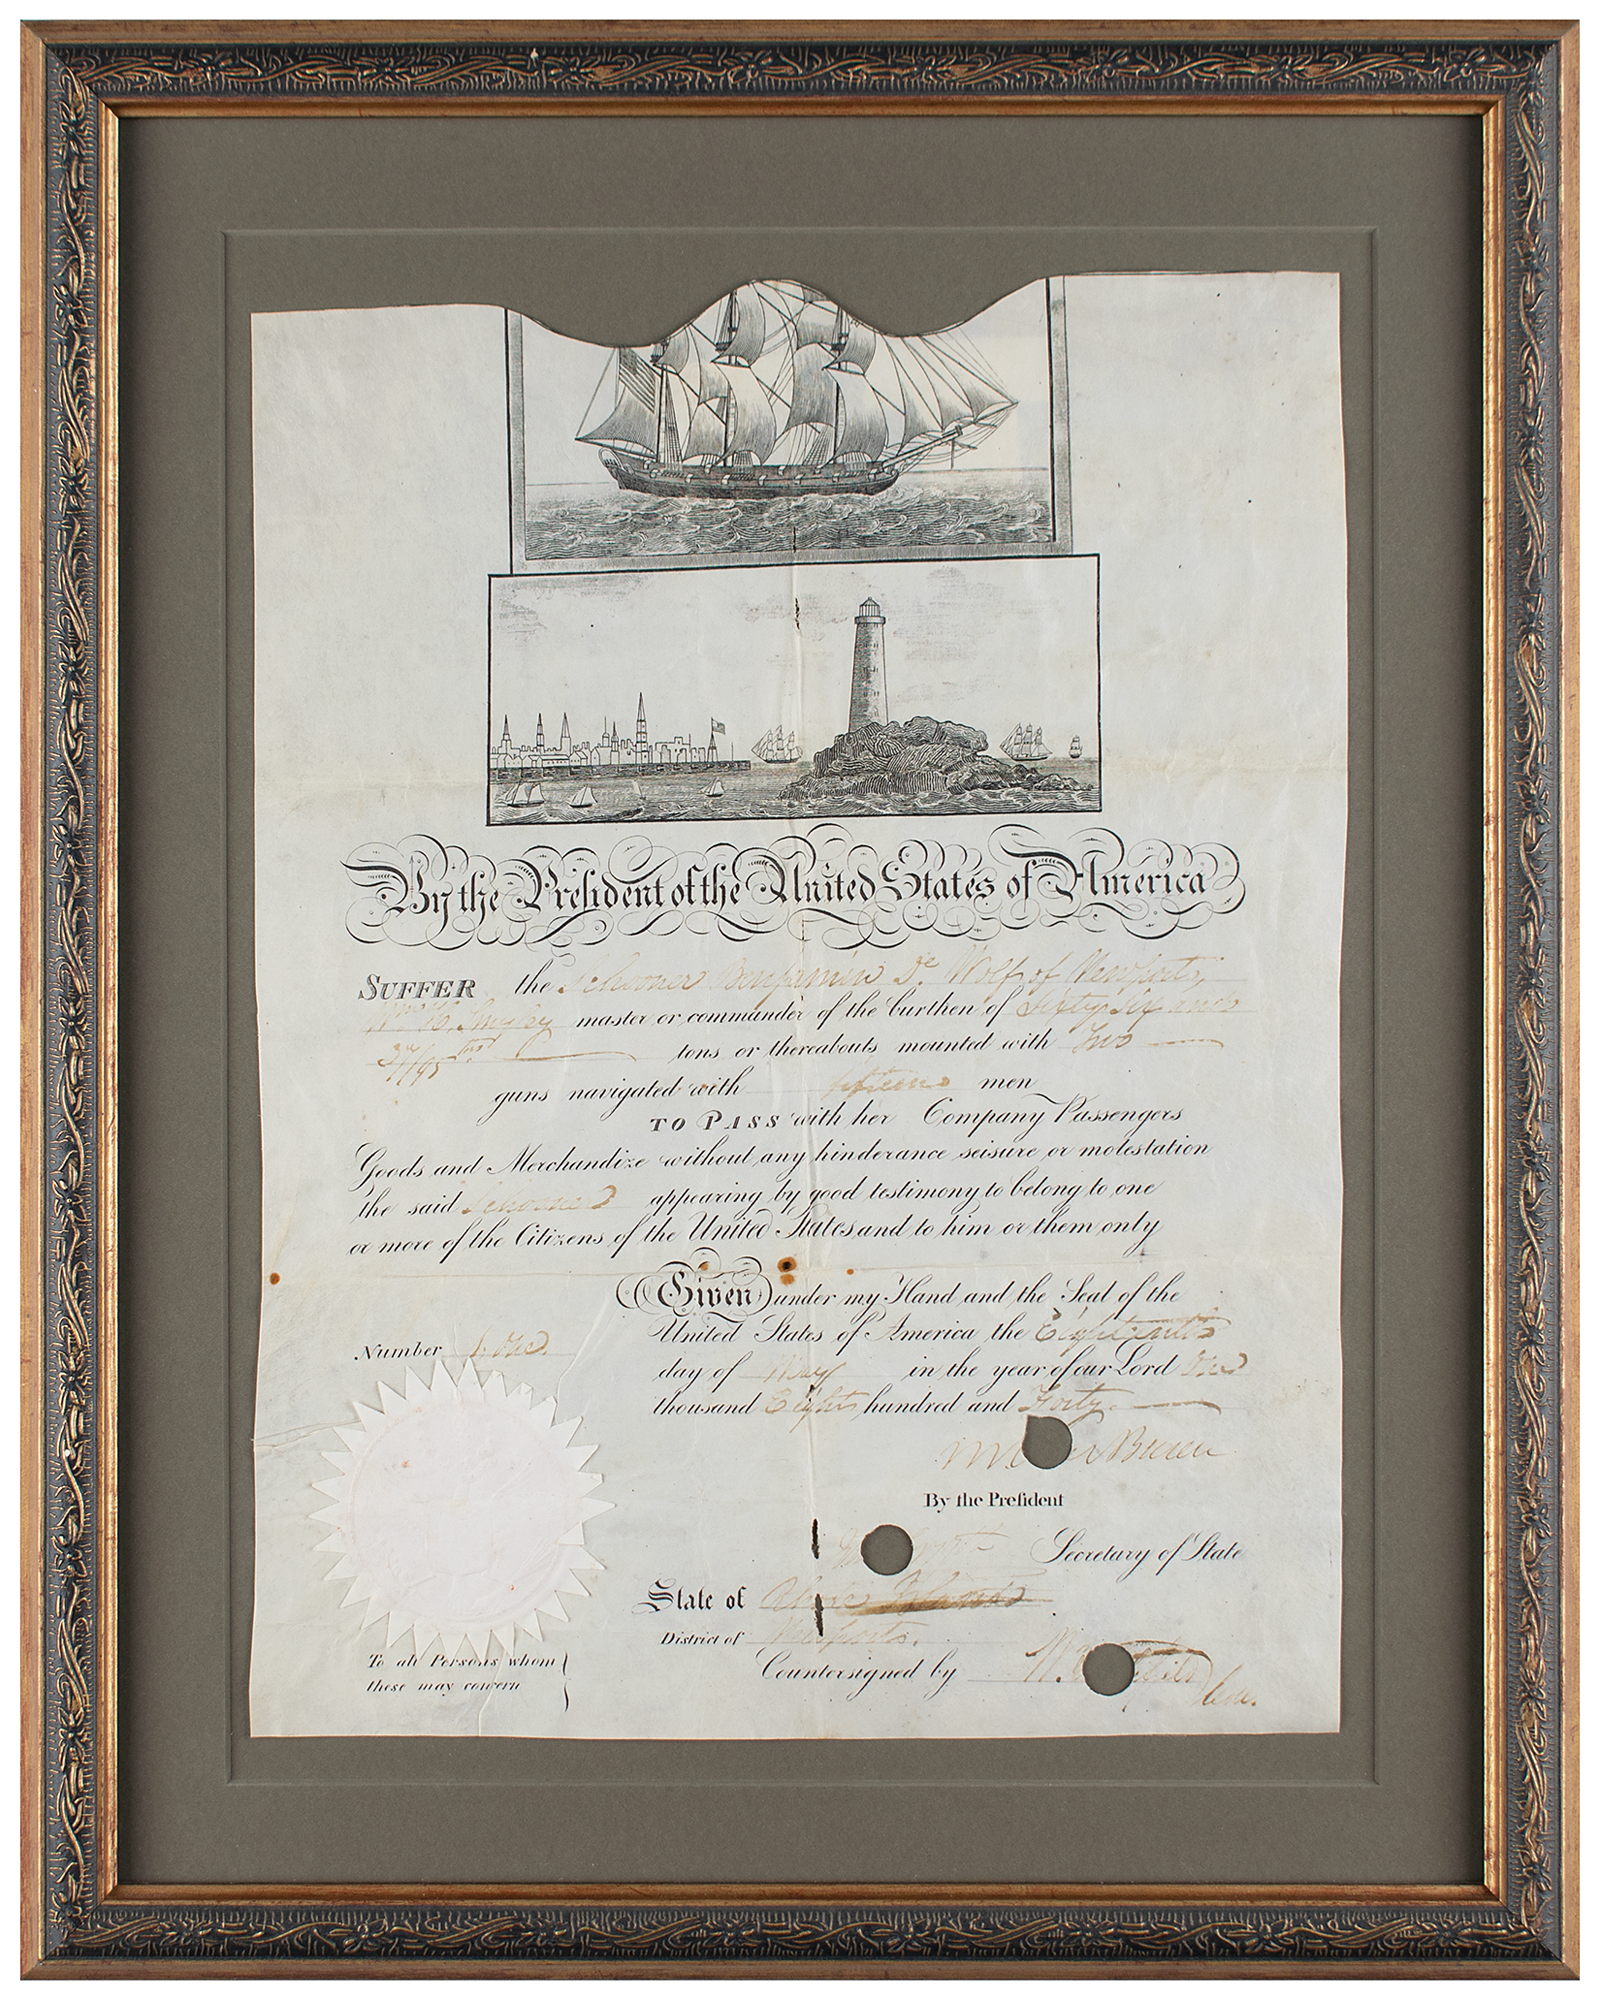 By the President of the United States of America
SUFFER the Schooner Benjamin De Wolf of Newport,
Wm H. master or commander of the burthen of Sixty six and
37/95ths tons or thereabouts mounted with Two
guns navigated with fifteen men
TO PASS with her Company Passengers
Goods and Merchandize without any hinderance seisure or molestation
the said Schooner appearing by good testimony to belong to one
or more of the Citizens of the United States and to him or them only
Given under my Hand and the Seal of the
United States of America the Eighteenth
day of May in the year of our Lord One
thousand Eight hundred and Forty.
Number 1. One.
M Buren
By the President
Secretary of State
State of Rhode Island
District of Newport.
Countersigned by W. Coll.
To all Persons whom
these may concern